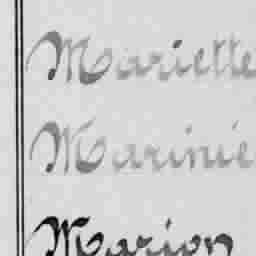 Mariette
Marinie
Marion